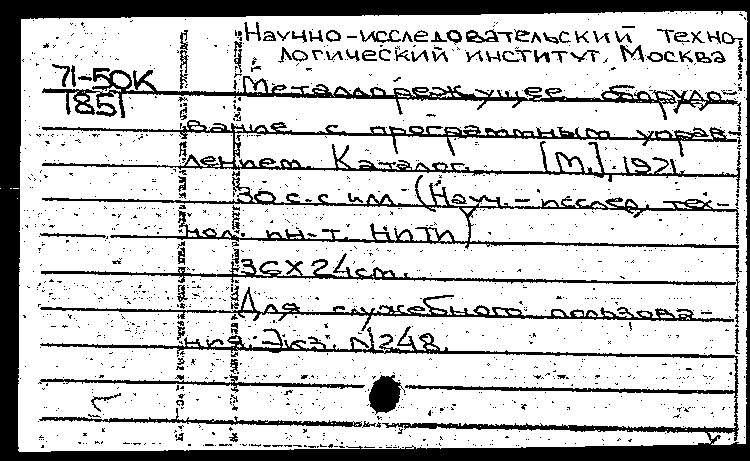 Научно-исследовательский техно-
логический институт, Москва
71-50К
1851
Металлорежущее оборудо-
вание с программным управ-
лением. Каталог. [М.], 1971.
30 с. с илл. (Науч.-исслед. тех-
нол. ин-т. НИТИ)
36X24см.
Для служебного пользова-
ния. Экз. N248.